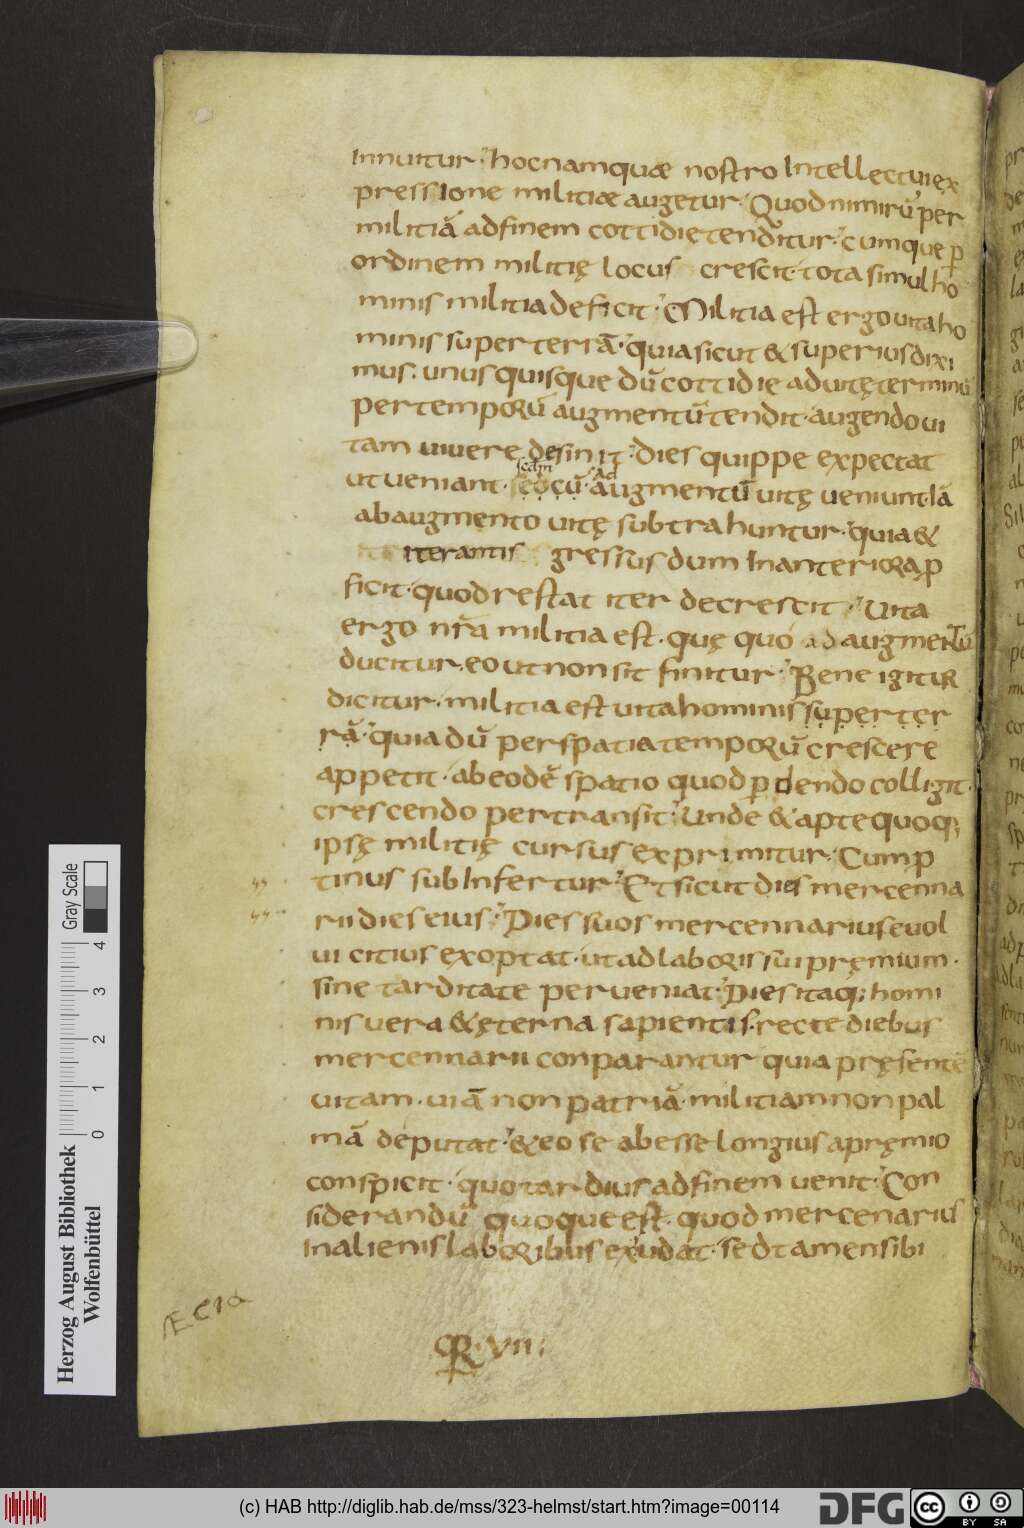 innuitur· hocnamquae nostro intellectui ex
pressione militiae augetur· Quod nimirū per
militiā adfinem cottidie tenditur· cumque p
ordinem militię locus crescit· tota simul ho
minis militia deficit· Militia est ergo uita ho
minis super terrā· quia sicut & superius dixi
mus· unus quisque dū cottidie ad uitę terminū
per temporū augmentū tendit· augendo ui
tam uiuere desinit· dies quippe expectat
ut ueniant· augmentū uitę ueniunt· iā
ab augmento uitę subtrahuntur· quia &
iterantis gressus dum in anteriora p
ficit· quod restat iter decrescit· Uita
ergo nr̄a militia est· quę quo ad augmentū
ducitur· eo ut non sit finitur· Bene igitur
dicitur· militia est uita hominis super ter
rā· quia dū per spatia temporū crescere
appetit· ab eodē spatio quod pdendo colligit·
crescendo pertransit· Unde & apte quoq;
ipsę militię cursus exprimitur· Cum p
tinus subinfertur· Et sicut dies mercenna
rii dies eius· Dies suos mercennarius euol
ui citius exoptat· ut ad laboris sui pręmium·
sine tarditate perueniat· Dies itaq; homi
nis uera & ęterna sapientis· recte diebus
mercennarii conparantur quia pręsentē
uitam· uiā non patriā· militiam non pal
mā deputat· & eo se abesse longius a pręmio
conspicit· quo tardius ad finem uenit· Con
siderandū quoque est· quod mercenarius
in alienis laboribus exudat· sed tamen sibi
QR· VII;
Herzog August Bibliothek
Wolfenbüttel
Gray Scale
0 1 2 3 4
(c) HAB http://diglib.hab.de/mss/323-helmst/start.htm?image=00114
DFG
cc BY SA